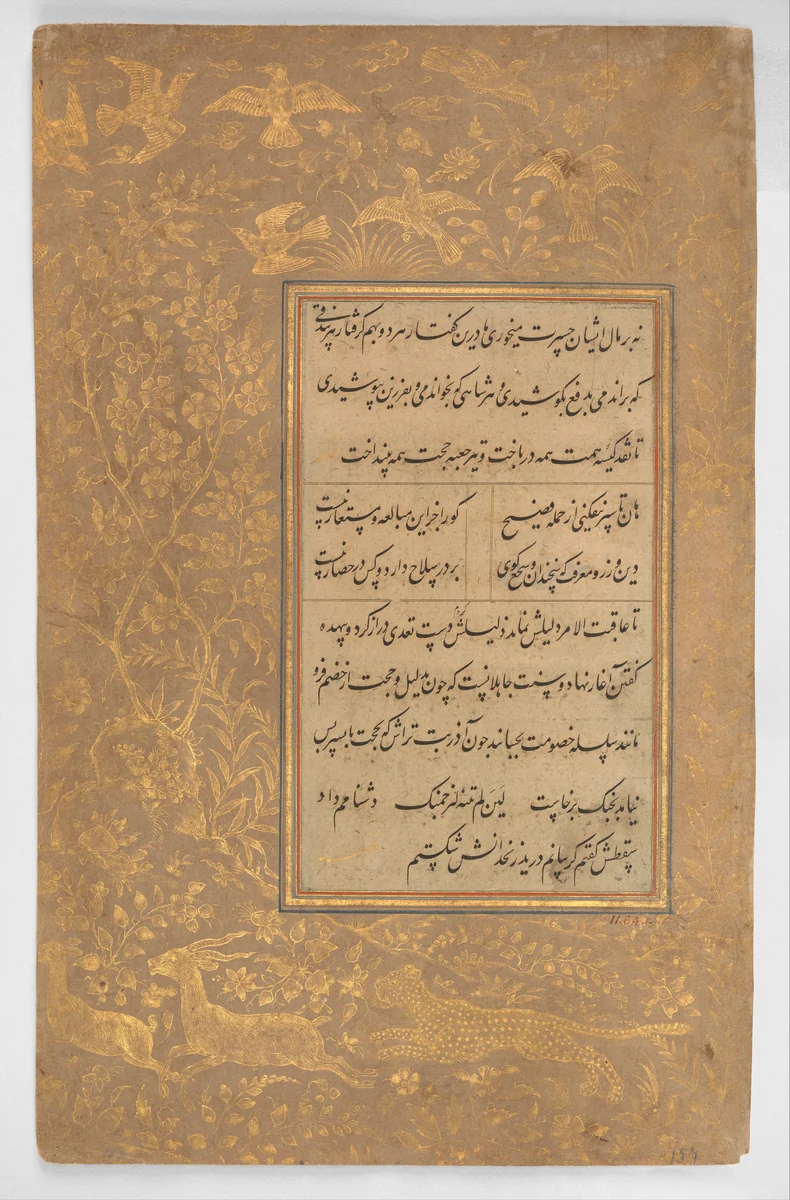 نه بر مال ایشان حسرت میخوری ما درین گفتار هر دو بهم گرفتار هر بیدقی
که براندمی بدفع بکوشیدی و هر شاهی که بخواندمی و بفرزین بپوشیدی
تا نقد کیسه همت همه درباخت و تیر جعبه حجت همه بینداخت
هان تا سپر نیفکنی از حمله فصیح کو را جز این مبالغه و مستعار نیست
دین ورز و معرفت که سخندان و سجع گوی بر در سلاح دارد و کس در حصار نیست
تا عاقبت الامر دلیلش نماند ذلیلش کردم دست تعدی دراز کرد و بیهده
گفتن آغاز نهاد و سنت جاهلانست که چون بدلیل و حجت از خصم فرو
مانند سلسله خصومت بجنبانند چون آذر بت تراش که بحجت با پسر بس
نیامد بجنگ برخاست لئن لم تنته لارجمنک دشنامم داد
سقطش گفتم گریبانم درید زنخدانش شکستم